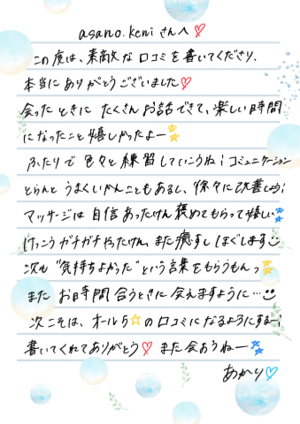 asano.keni さんへ♡
この度は、素敵な口コミを書いてくださり、
本当にありがとうございました♡
会ったときにたくさんお話できて、楽しい時間
になったこと嬉しかったよー⭐
ふたりで色々と練習していこうね!コミュニケーション
とらんとうまくいかんこともあるし、徐々に改善しよう!
マッサージは自信あったけん褒めてもらって嬉しい⭐
けっこうガチガチやったけん、また癒すしほぐします☺
次も"気持ちよかった"という言葉をもらうもんっ⭐
またお時間合うときに会えますように…☺
次こそは、オール5⭐の口コミになるようにするー!
書いてくれてありがとう♡また会おうねー⭐
あかり♡